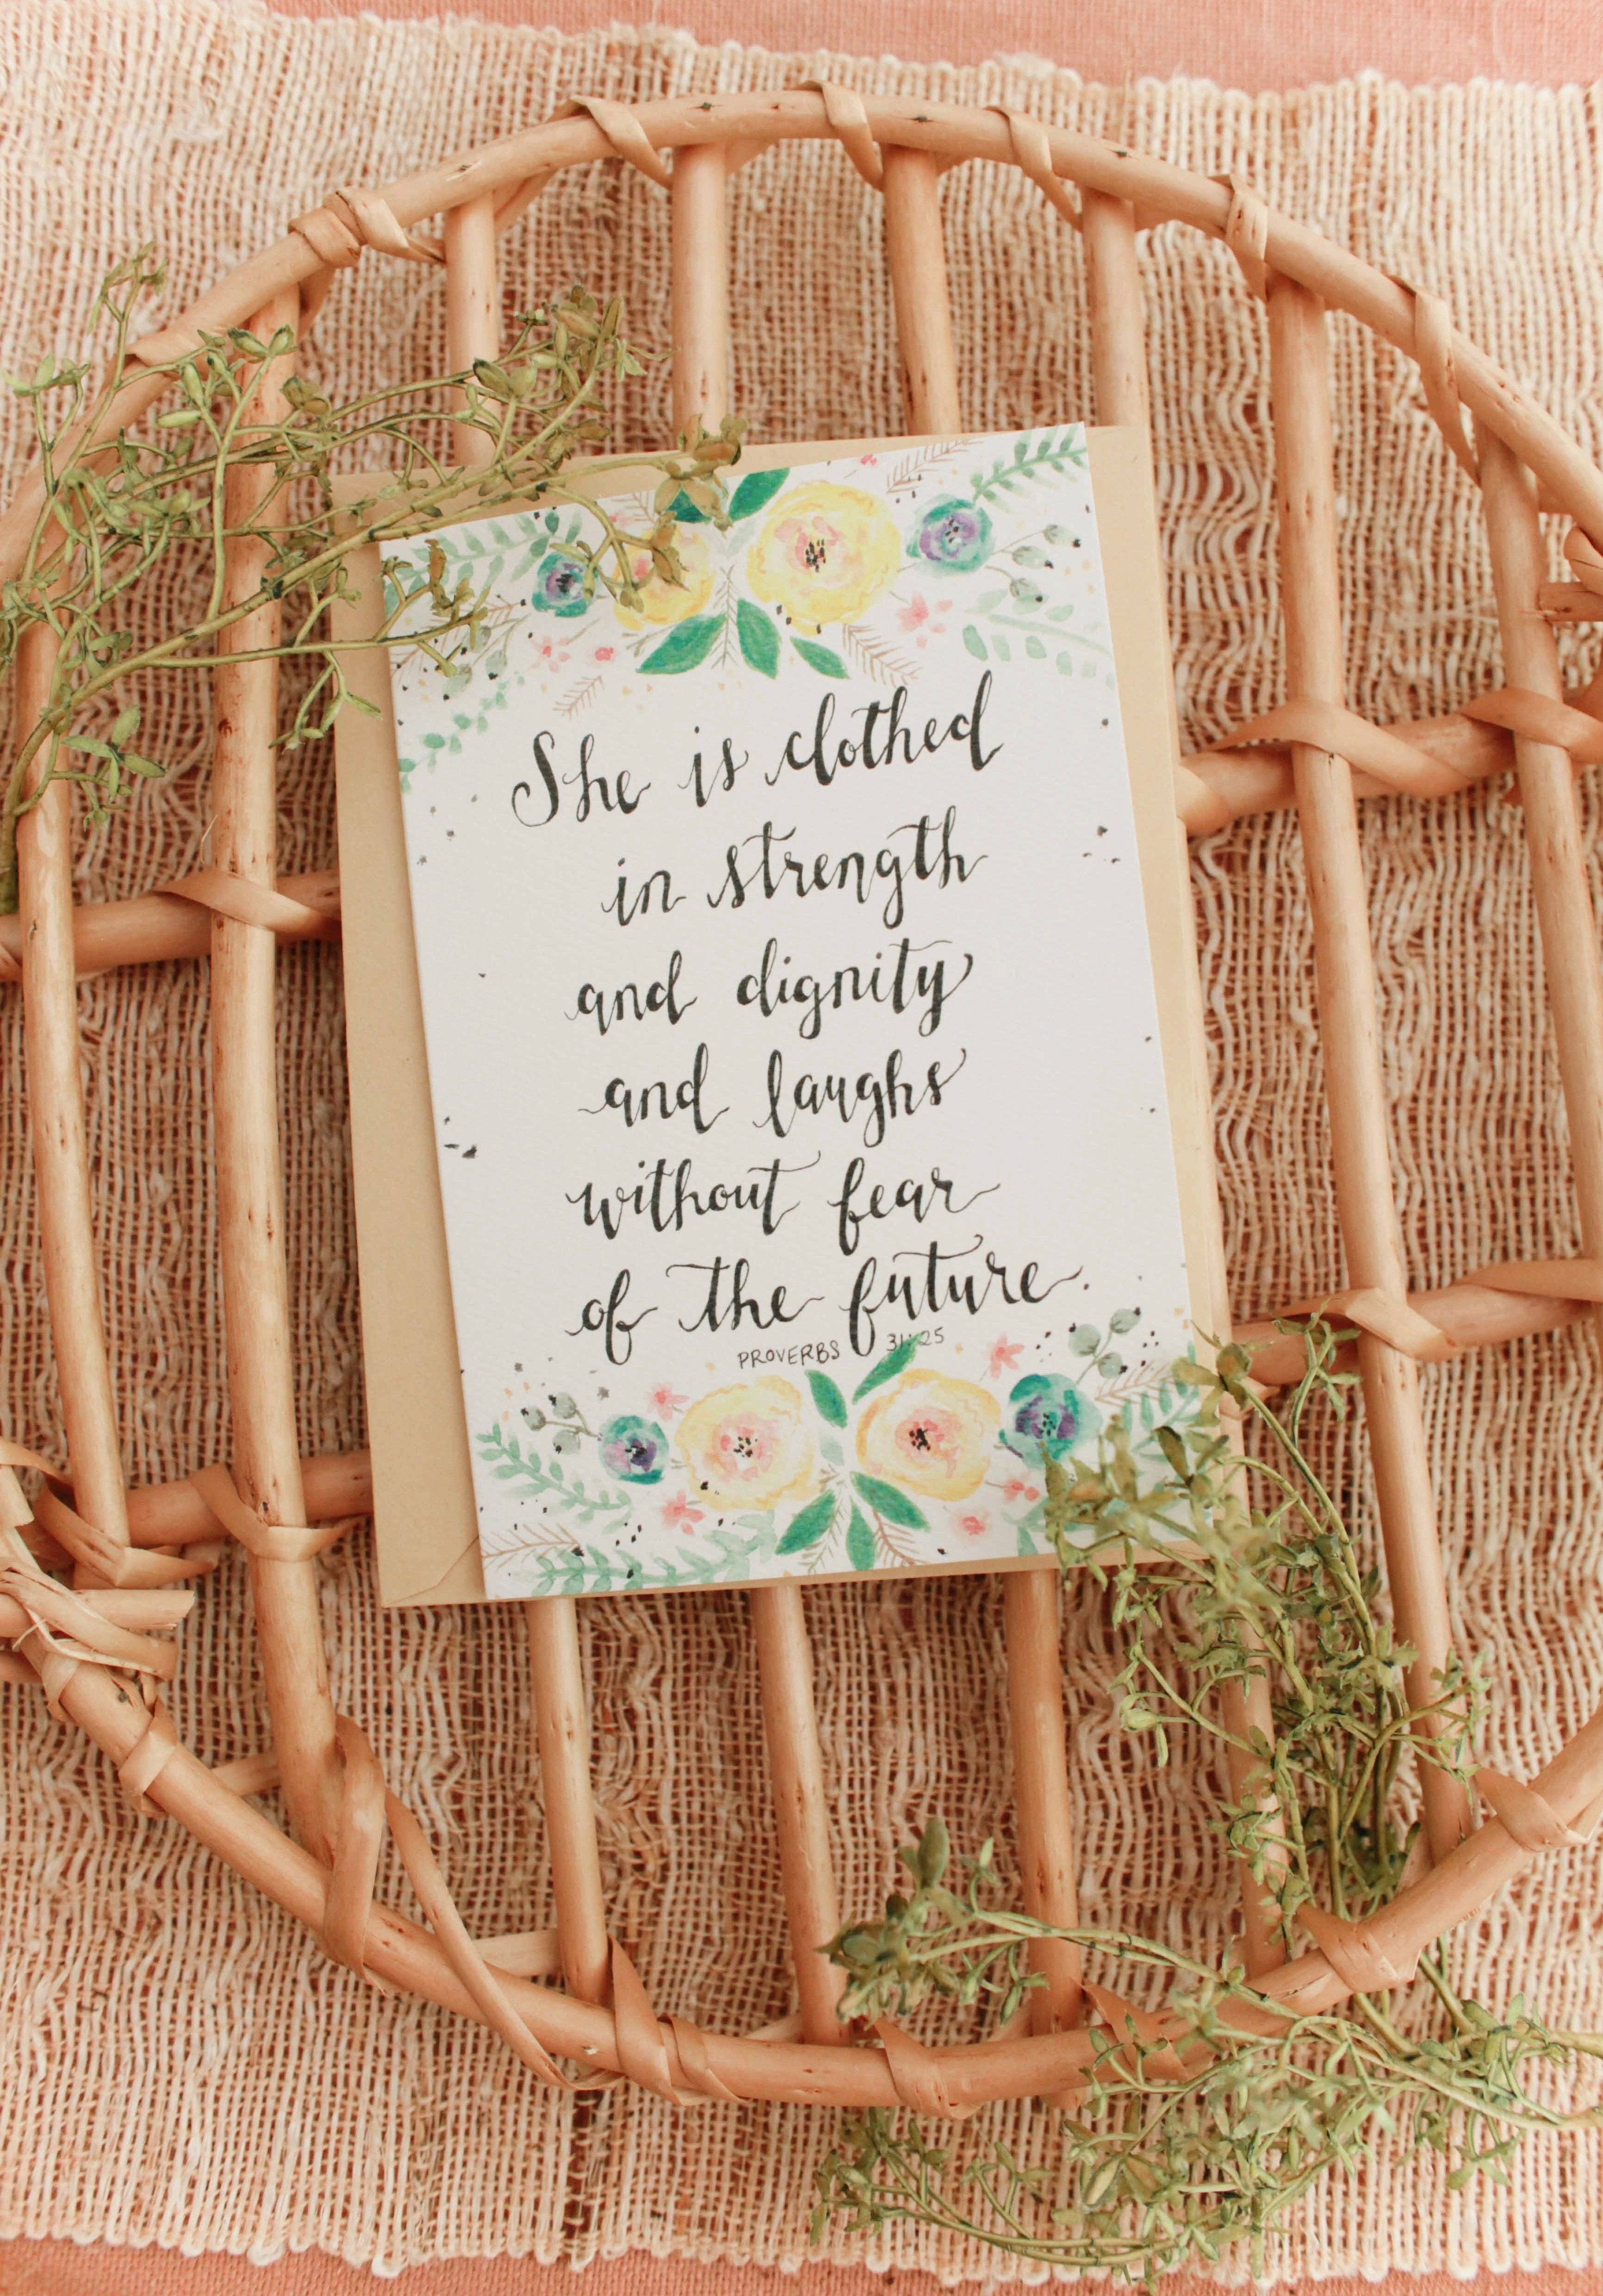 She is clothed
in strength
and dignity
and laughs
without fear
of the future.
PROVERBS 31:25